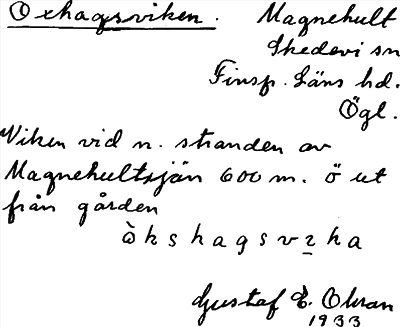 Oxhagsviken. Magnehult
Skedevi sn
Finsp. Läns hd.
Ögl.
Viken vid n. stranden av
Magnehultsjön 600 m. ö ut
från gården
òkshagsvɪ̱ka
Gustaf E. Okran
1933